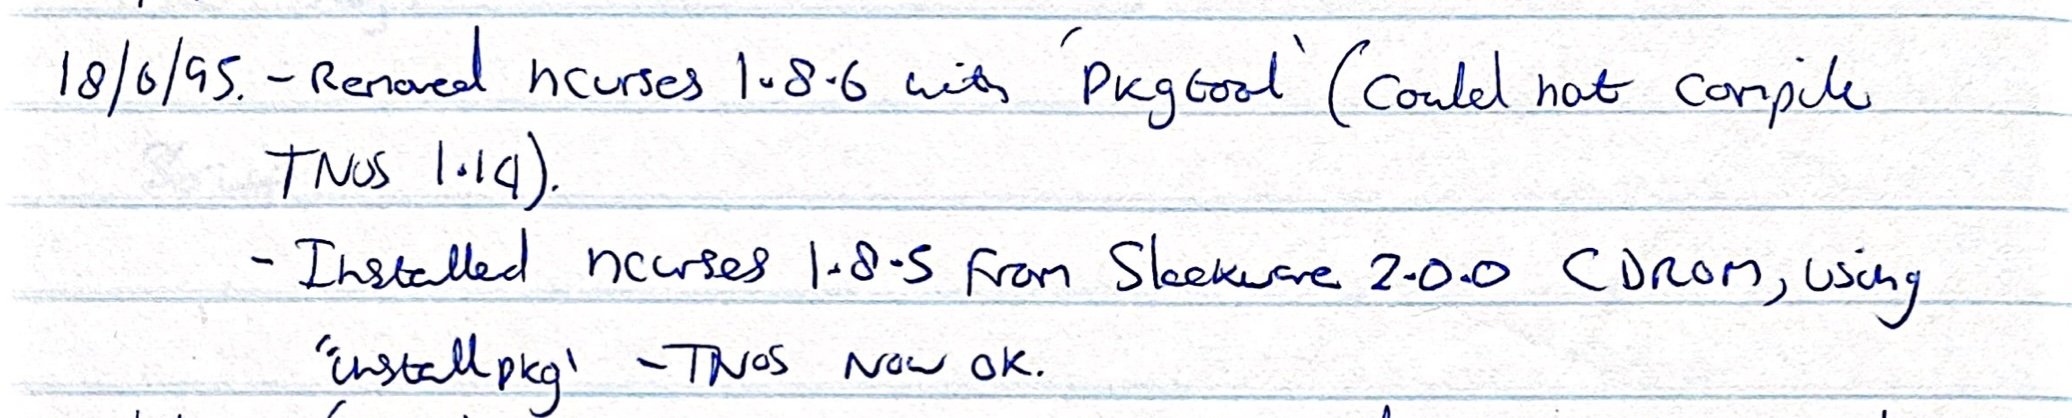 18/6/95. - Removed ncurses 1.8.6 with 'pkgtool' (Could not compile
TNOS 1.14).
- Installed ncurses 1.8.5 from Slackware 2.0.0 CDROM, using
'installpkg' - TNOS NOW OK.